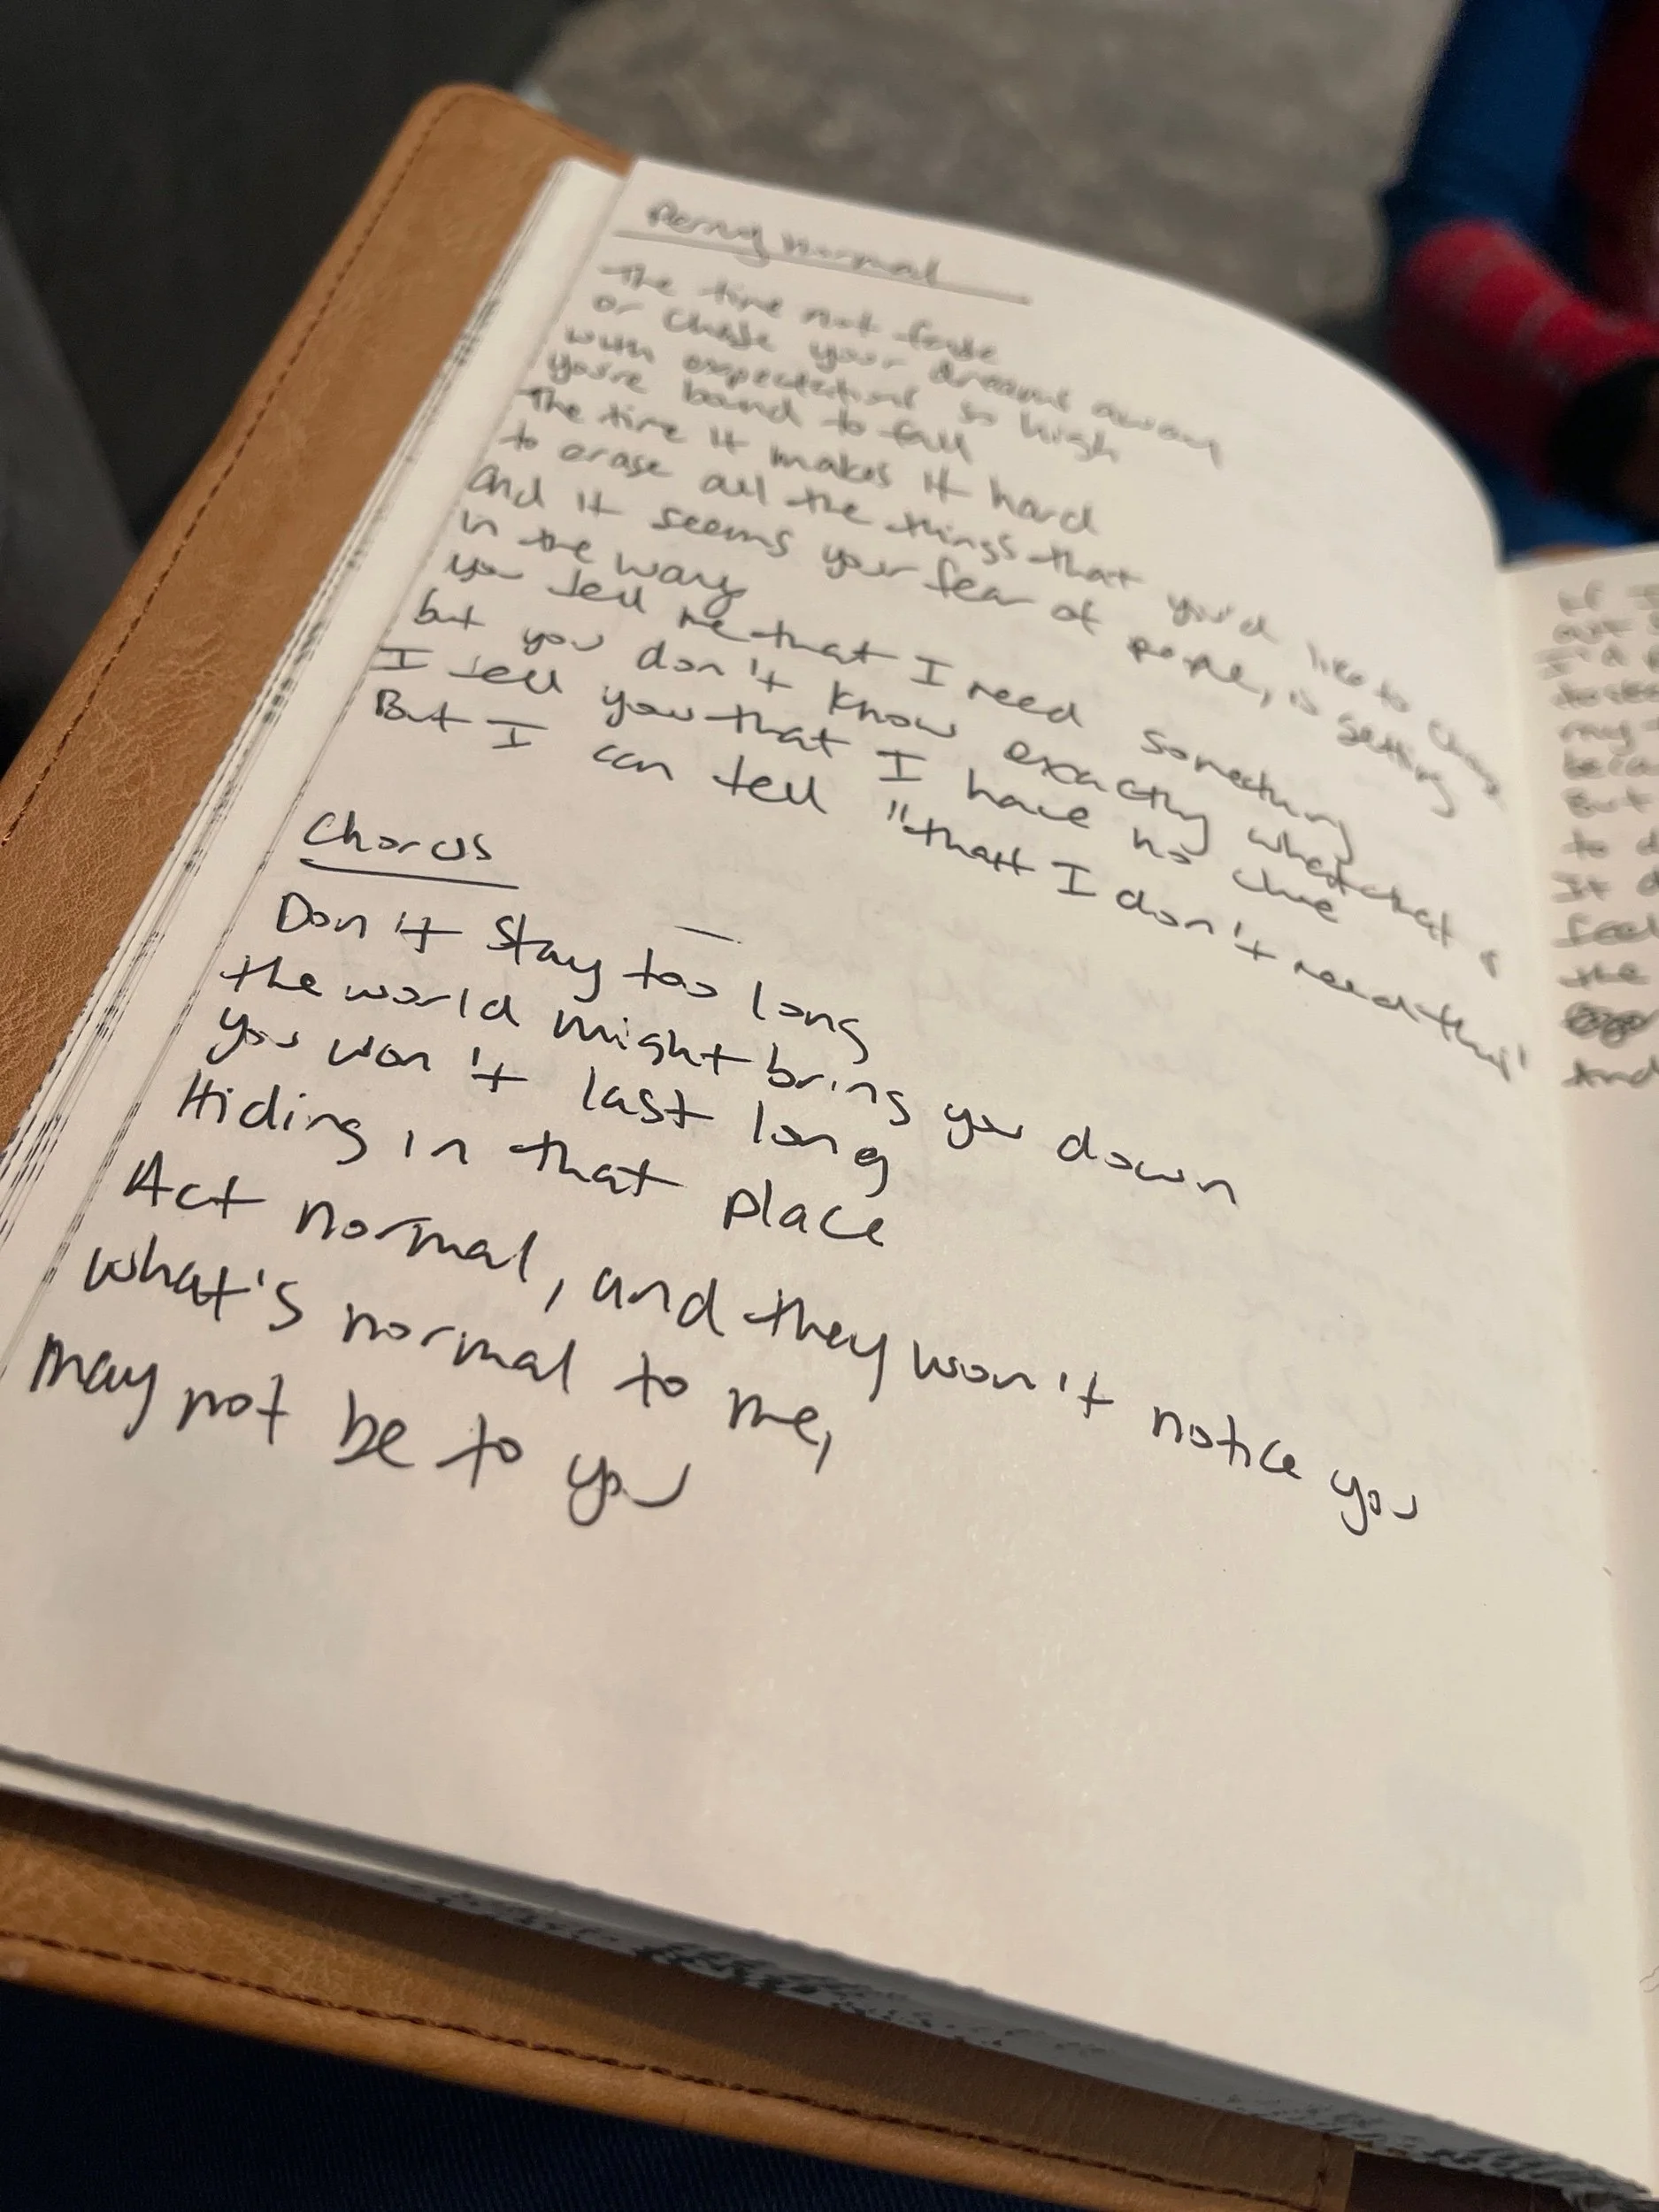 Normal
The time not
or chase your dreams away
with expectations so high
you're bound to fall
The time it makes it hard
to erase all the things that you'd like to
And it seems your fear of people, is getting
in the way
you tell me that I need something
but you don't know exactly what
I tell you that I have no clue
But I can tell "that I don't need this"
Chorus
Don't stay too long
the world might bring you down
you won't last long
Hiding in that place
Act normal, and they won't notice you
what's normal to me,
may not be to you
feel
the
And